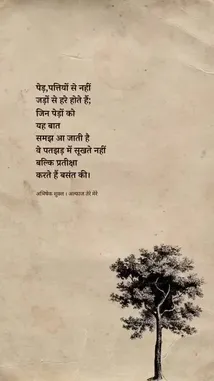 पेड़,पत्तियों से नहीं
जड़ों से हरे होते हैं;
जिन पेड़ों को
यह बात
समझ आ जाती है
वे पतझड़ में सूखते नहीं
बल्कि प्रतीक्षा
करते हैं बसंत की।
अभिषेक शुक्ल।